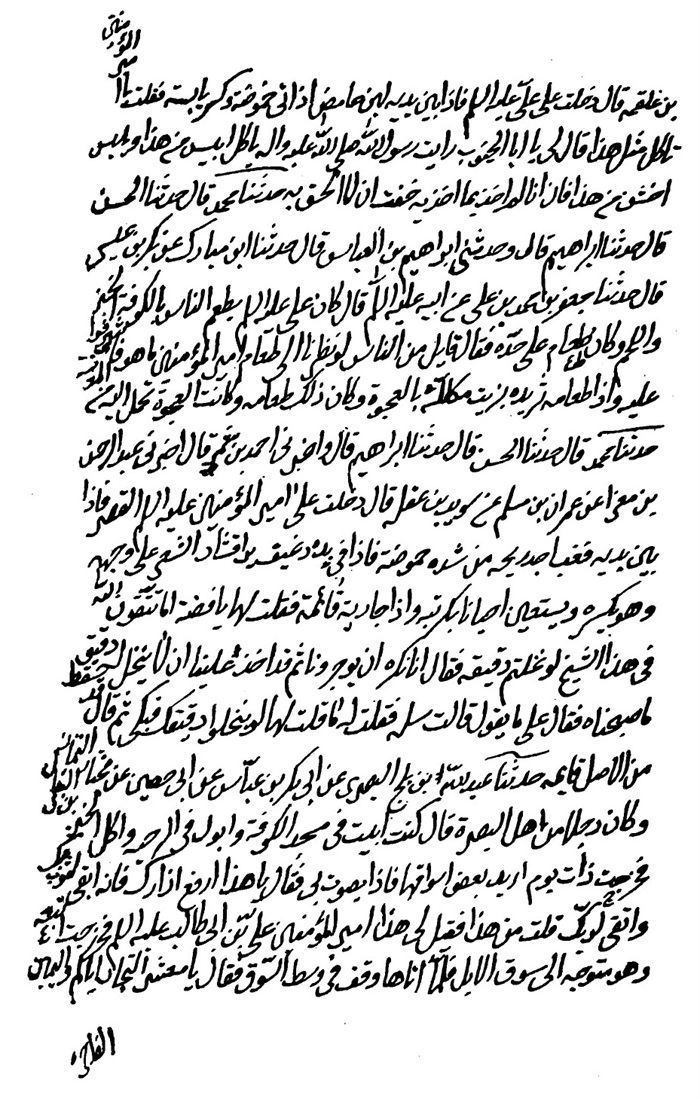 بن علقمه قال دخلت على علىّ عليه السلم فاذا بين يديه لبن حامض اذانى حموضة وكسر يابسه فقلت يا امير المؤمنين
تاكل مثل هذا قال لى يا ابا الجنوب رايت رسول الله صلى الله عليه واله ياكل ايبس من هذا ويلبس
اخشن من هذا فان انا لم اخذ بما اخذ به خفت ان لا الحق به حدثنا محمد قال حدثنا الحسن
قال حدثنا ابراهيم قال وحدثنى ابراهيم بن العباس قال حدثنا ابن مبارك عن بكر بن عيسى
قال حدثنا جعفر بن محمد بن على عن ابيه عليه السلم قال كان على عليه السلم يطعم الناس بالكوفة الخبز
واللحم وكان له طعام على حدّه فقال قايل من الناس لو نظرنا الى طعام امير المؤمنين ما هو فاشرفوا
عليه واذا طعامه ثريده بزيت مكللة بالعجوة وكان ذلك طعامه وكانت العجوة تحمل اليه من المدينة
حدثنا محمد قال حدثنا الحسن قال حدثنا ابراهيم قال واخبرنى احمد بن قال اخبرنى عبد الرحمن
بن معزا عن عمران بن مسلم عن سويد بن غفله قال دخلت على امير المؤمنين عليه السلم القصر فاذا
بين يديه قعب اجد ريحه من شدة حموضة فاذا فى يده رغيف يرى قشار الشعير على وجهه
وهو يكسره ويستعين احيانا بركبته واذا جارية قائمة فقلت لها يا فضة اما تتقون الله
فى هذا الشيخ لو نخلتم دقيقه فقال انا نكره ان يوجر وناثم قد اخذ علينا ان لا ننخل له دقيق
ما صحبناه فقال على ما يقول قالت سله فقلت له ما قلت لها لو ينخلوا دقيقك فبكى ثم قال
من الاصل قايمه حدثنا عبد الله بن بلج البصرى عن ابى بكر بن عياش عن ابى حصين عن مختار التمار
وكان رجلا من اهل البصرة قال كنت ابيت فى مسجد الكوفة وابول فى الرحبه واكل الخبز
فخرجت ذات يوم اريد بعض اسواقها فاذا بصوت بى فقال يا هذا ارفع ازارك فانه ابقى لثوبك
واتقى لربك قلت من هذا فقيل لى هذا امير المؤمنين على بن ابى طالب عليه السلم فخرجت اتبعه
وهو متوجه الى سوق الابل فلما اتاها وقف فى وسط السوق فقال يا معشر التجار اياكم واليمين
الفاجره